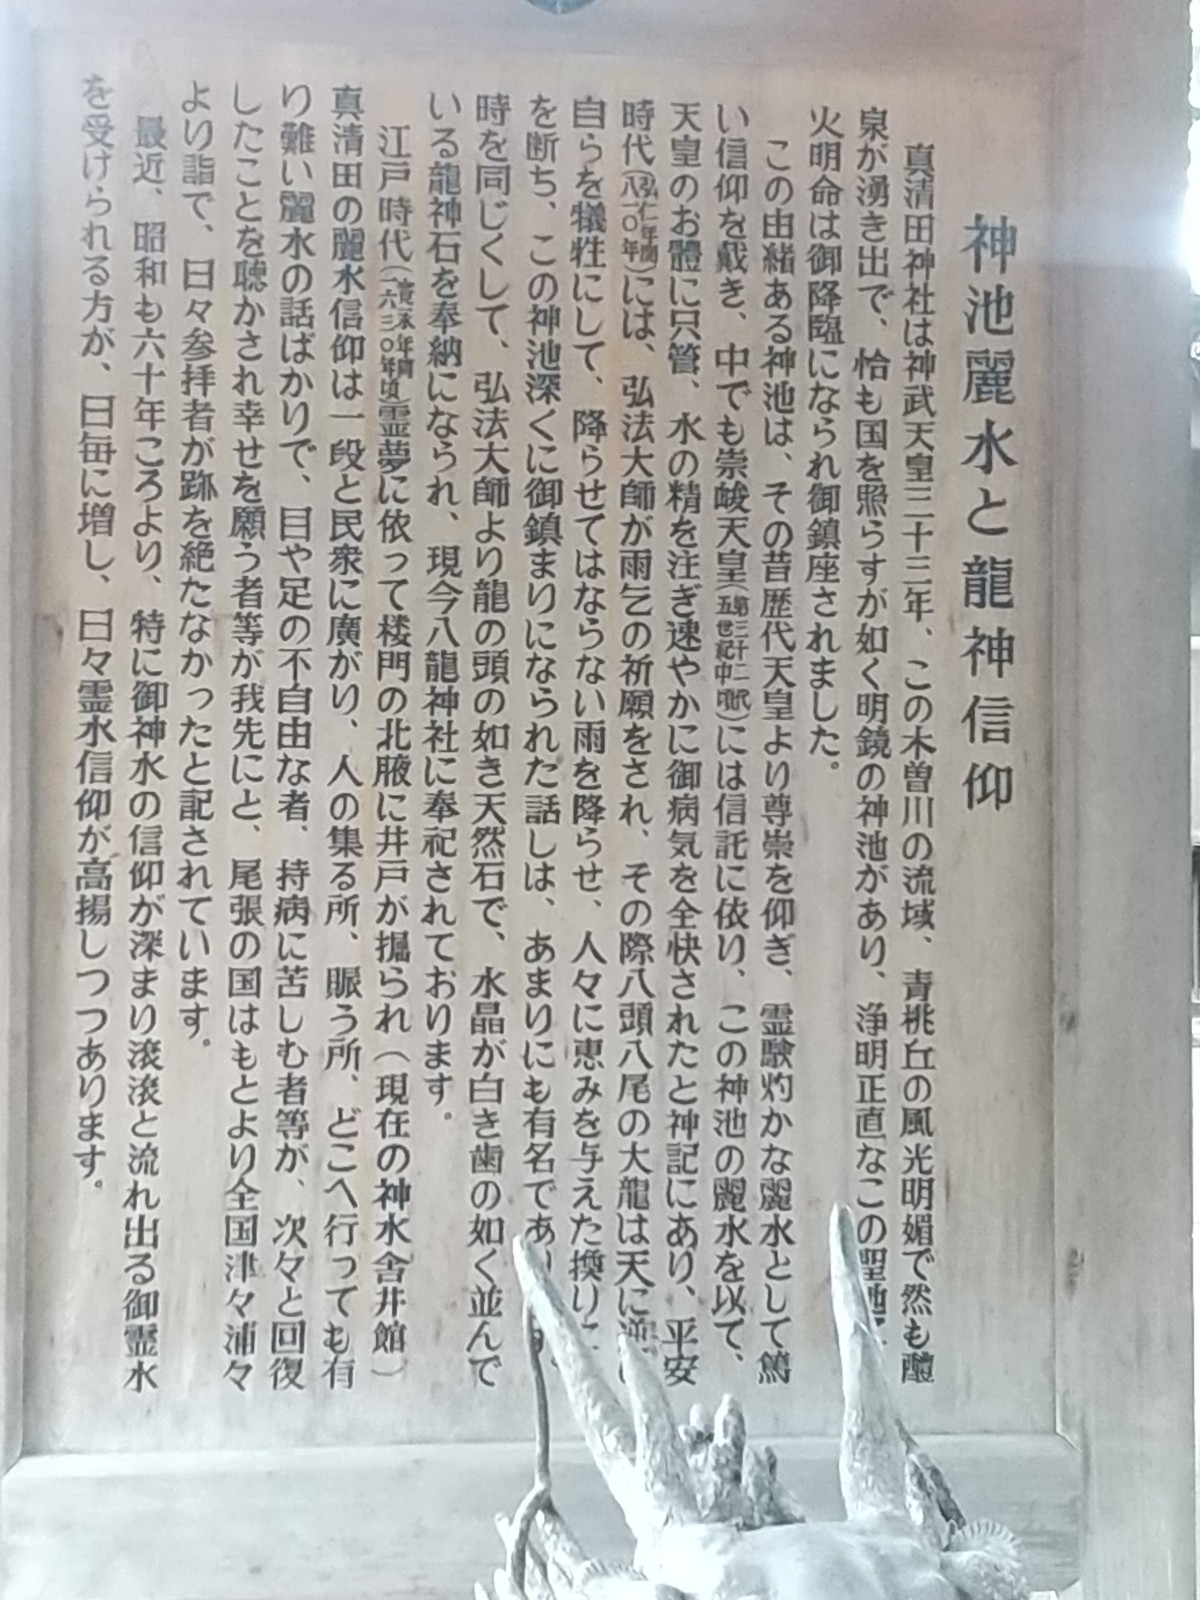 神池麗水と龍神信仰
真清田神社は神武天皇三十三年、この木曽川の流域、青桃丘の風光明媚で然も醴
泉が湧き出で、恰も国を照らすが如く明鏡の神池があり、浄明正直なこの聖地
火明命は御降臨になられ御鎮座されました。
この由緒ある神池は、その昔歴代天皇より尊崇を仰ぎ、霊験灼かな麗水として篤
い信仰を戴き、中でも崇峻天皇(第三十二代五世紀中頃)には信託に依り、この神池の麗水を以て、
天皇のお體に只管、水の精を注ぎ速やかに御病気を全快されたと神記にあり、平安
時代(弘仁年間八一〇年)には、弘法大師が雨乞の祈願をされ、その際八頭八尾の大龍は天に逆
自らを犠牲にして、降らせてはならない雨を降らせ、人々に恵みを与えた換りに
を断ち、この神池深くに御鎮まりになられた話しは、あまりにも有名であり
時を同じくして、弘法大師より龍の頭の如き天然石で、水晶が白き歯の如く並んで
いる龍神石を奉納になられ、現今八龍神社に奉祀されております。
江戸時代(寛永年間一六三〇年頃)霊夢に依って楼門の北腋に井戸が掘られ(現在の神水舎井館)
真清田の麗水信仰は一段と民衆に廣がり、人の集る所、賑う所、どこへ行っても有
り難い麗水の話ばかりで、目や足の不自由な者、持病に苦しむ者等が、次々と回復
したことを聴かされ幸せを願う者等が我先にと、尾張の国はもとより全国津々浦々
より詣で、日々参拝者が跡を絶たなかったと記されています。
最近、昭和も六十年ころより、特に御神水の信仰が深まり滾滾と流れ出る御霊水
を受けられる方が、日毎に増し、日々霊水信仰が高揚しつつあります。